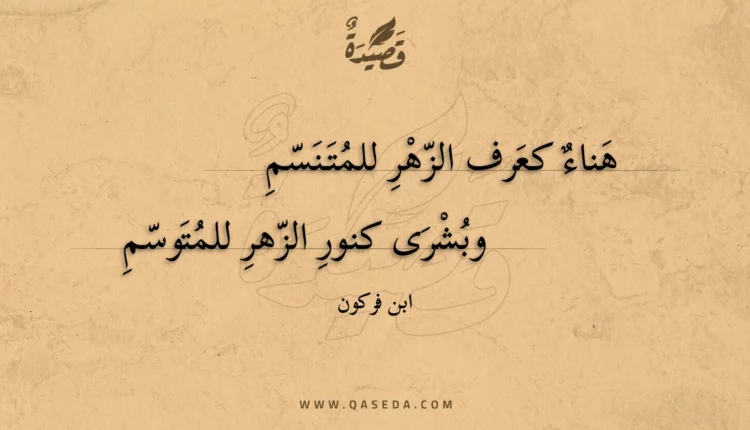 قَصِيْدَةٌ
هَناءٌ كعَرف الزّهْرِ للمُتَنَسّمِ
وبُشْرَى كنورِ الزّهرِ للمُتَوسّمِ
ابن فركون
WWW.QASEDA.COM